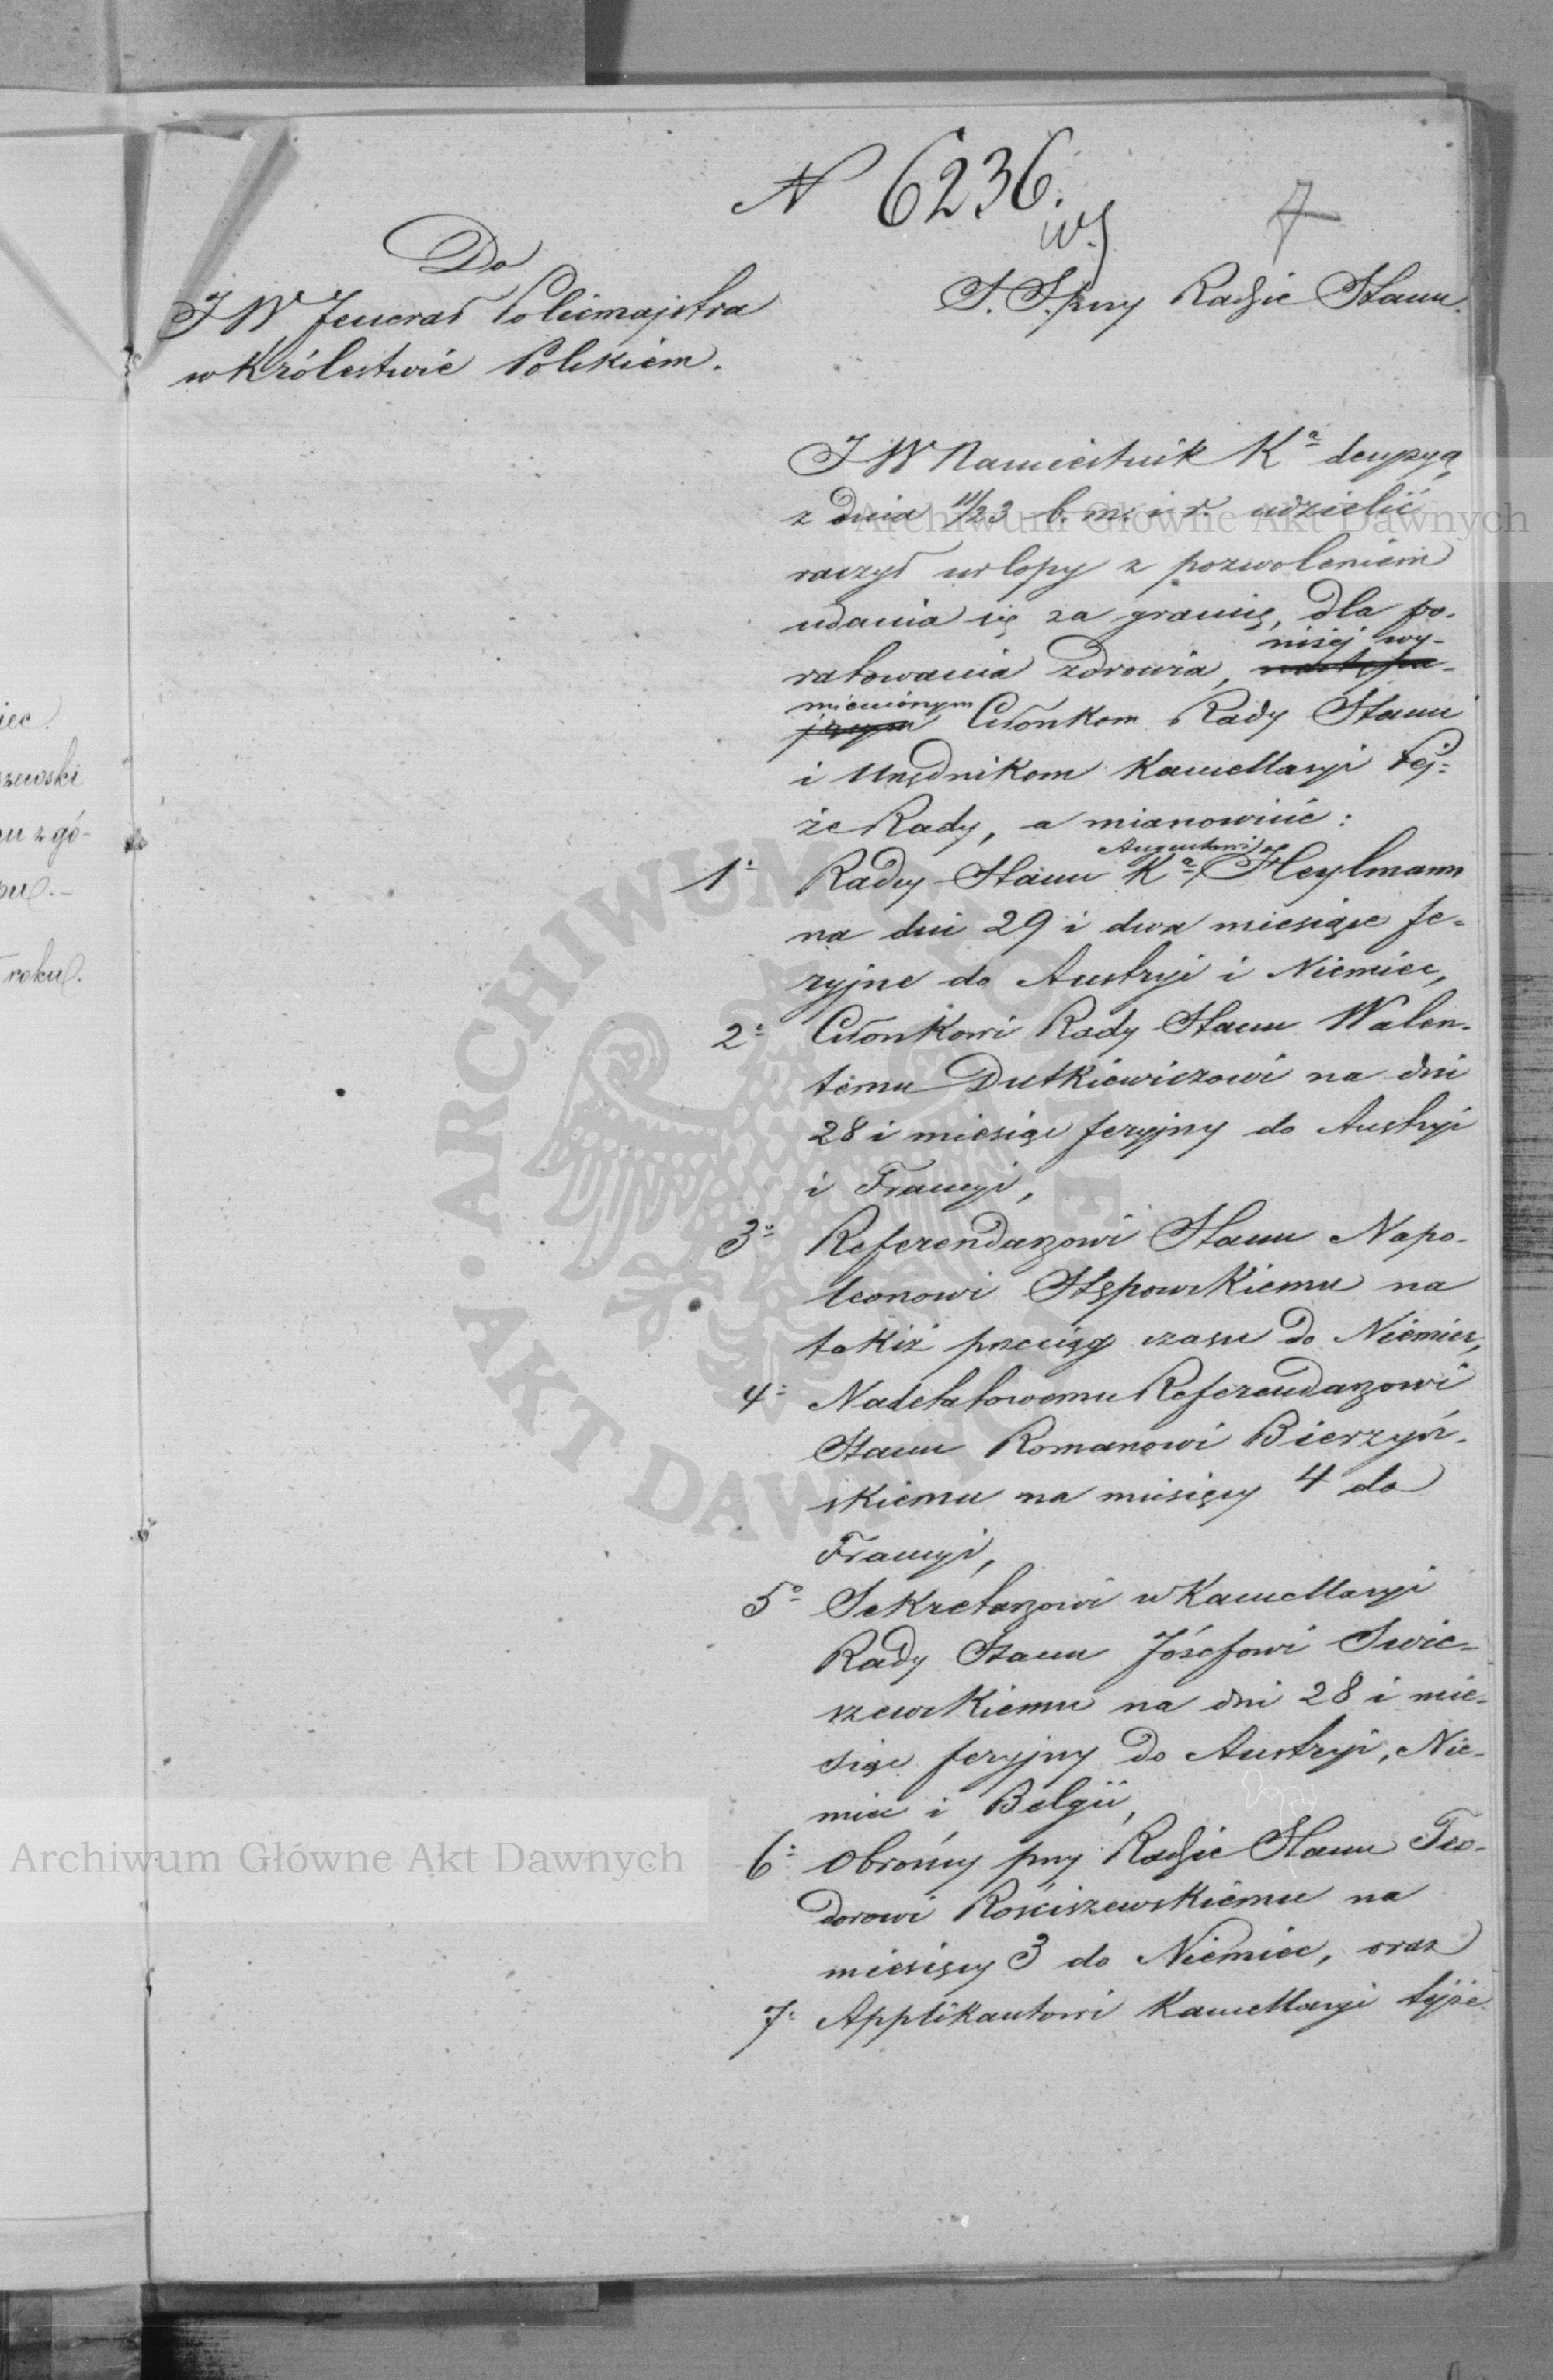 N 6236.
7
Do
JW Jenerał Policmajstra
w Królestwie Polskiem.
S. S. przy Radzie Stanu.
JW Namiestnik Kª decyzyą
z dnia 11/23 b. m. i r. udzielić
raczył urlopy z pozwoleniem
udania się za granicę, dla po-
ratowania zdrowia, niżej wy-
mienionym Członkom Rady Stanu
i Urzędnikom Kancellaryi tej-
że Rady, a mianowicie:
1º Radcy Stanu Kª Augustowi Heylmann
na dni 29 i dwa miesiące fe-
ryjne do Austryi i Niemiec,
2º Członkowi Rady Stanu Walen-
temu Dutkiewiczowi na dni
28 i miesiąc feryjny do Austryi
i Francyi,
3º Referendarzowi Stanu Napo-
leonowi Stępowskiemu na
takiż przeciąg czasu do Niemiec,
4º Nadetatowemu Referendarzowi
Stanu Romanowi Bierzyń-
skiemu na miesięcy 4 do
Francyi,
5º Sekretarzowi w Kancellaryi
Rady Stanu Józefowi Swie-
szewskiemu na dni 28 i mie-
siąc feryjny do Austryi, Nie-
miec i Belgii,
6º Obrońcy przy Radzie Stanu Teo-
dorowi Rościszewskiemu na
miesięcy 3 do Niemiec, oraz
7º Applikantowi Kancellaryi tejże
iec.
szewski
zgó-
roku.
Archiwum Główne Akt Dawnych
Archiwum Główne Akt Dawnych
ARCHIWUM GŁÓWNE
AKT DAWNYCH